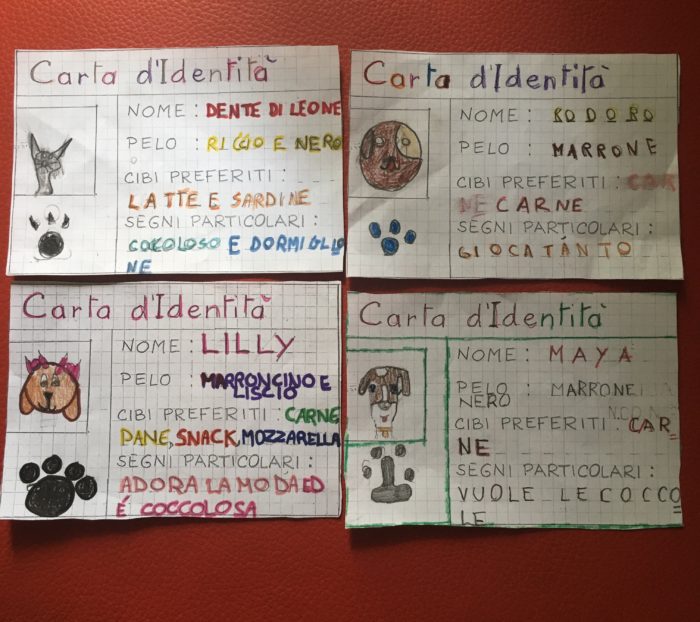 Carta d'Identità
NOME : DENTE DI LEONE
PELO : RICCIO E NERO
CIBI PREFERITI :
LATTE E SARDINE
SEGNI PARTICOLARI :
COCOLOSO E DORMIGLIO
NE
Carta d'Identità
NOME : RODORO
PELO : MARRONE
CIBI PREFERITI : CAR
NE CARNE
SEGNI PARTICOLARI :
GIOCA TANTO
Carta d'Identità
NOME : LILLY
PELO : MARRONCINO E
LISCIO
CIBI PREFERITI : CARNE
PANE, SNACK, MOZZARELLA
SEGNI PARTICOLARI :
ADORA LA MODA ED
É COCCOLOSA
Carta d'Identità
NOME : MAYA
PELO : MARRONE
NERO
CIBI PREFERITI : CAR
NE
SEGNI PARTICOLARI :
VUOLE LE COCCO
LE